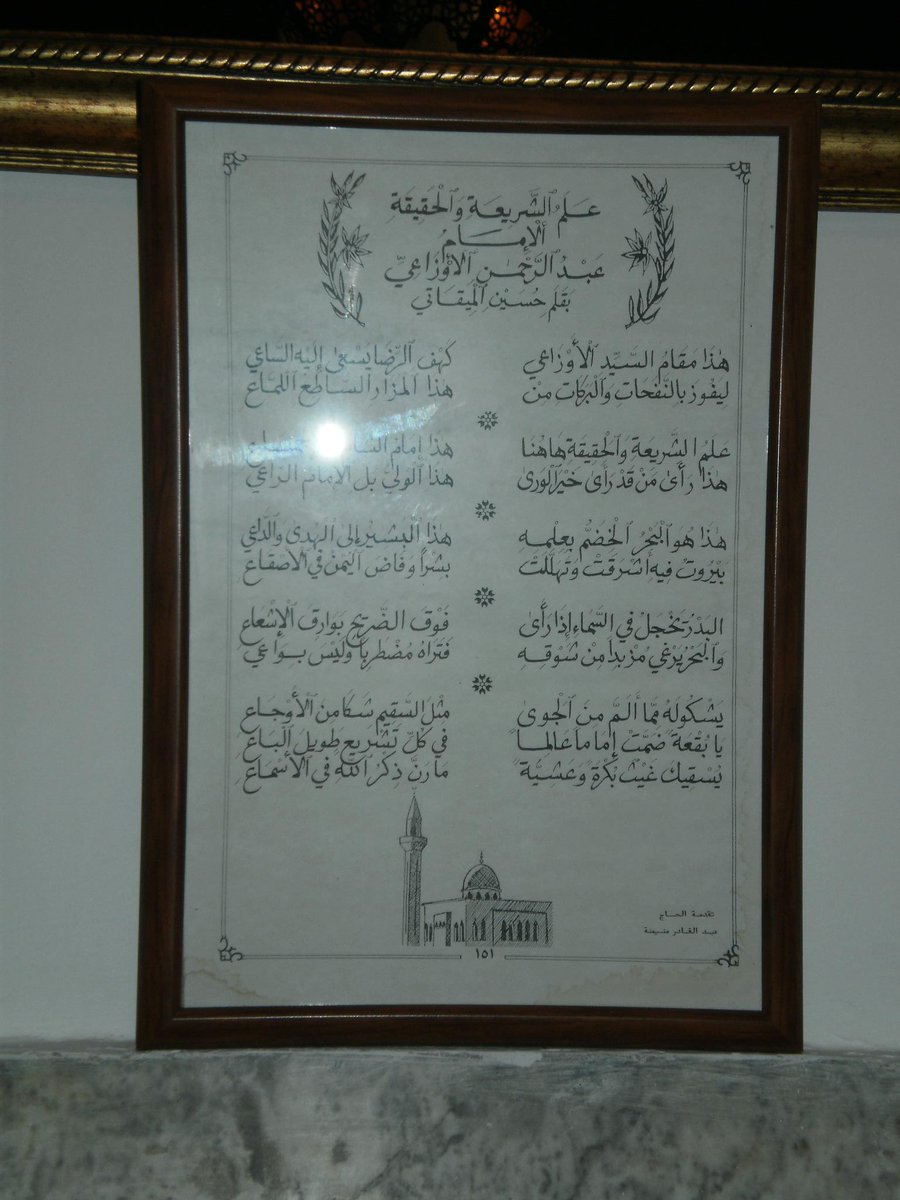 عَلَمُ ٱلشَّرِيعَةِ وَٱلْحَقِيقَةِ
ٱلْإِمَامُ
عَبْدُ ٱلرَّحْمٰنِ ٱلْأَوْزَاعِيِّ
بِقَلَمِ حُسَيْنِ ٱلْمِيقَاتِي
هٰذَا مَقَامُ السَّيِّدِ ٱلْأَوْزَاعِي كَهْفِ ٱلرِّضَا يَسْعَى إِلَيْهِ السَّاعِي
لِيَفُوزَ بِالنَّفَحَاتِ وَٱلْبَرَكَاتِ مِنْ هٰذَا ٱلْمَزَارِ السَّاطِعِ اللَّمَّاعِ
عَلَمُ الشَّرِيعَةِ وَٱلْحَقِيقَةِ هَاهُنَا هٰذَا إِمَامُ
هٰذَا رَأَى مَنْ قَدْ رَأَى خَيْرَ ٱلْوَرَى هٰذَا ٱلْوَلِيُّ بَلِ الْإِمَامُ الرَّاعِي
هٰذَا هُوَ ٱلْبَحْرُ ٱلْخِضَمُّ بِعِلْمِهِ هٰذَا ٱلْبَشِيرُ إِلَى ٱلْهُدَى وَٱلدَّاعِي
بَيْرُوتُ فِيهِ أَشْرَقَتْ وَتَهَلَّلَتْ بِشْرًا وَفَاضَ ٱلْيُمْنُ فِي ٱلْأَصْقَاعِ
البَدْرُ يَخْجَلُ فِي السَّمَاءِ إِذَا رَأَى فَوْقَ الضَّرِيحِ بَوَارِقَ ٱلْإِشْعَاعِ
وَٱلْبَحْرُ يَرْغِي مُزْبِدًا مِنْ شَوْقِهِ فَتَرَاهُ مُضْطَرِبًا وَلَيْسَ بِوَاعِي
يَشْكُو لَهُ مِمَّا أَلَمَّ مِنَ ٱلْجَوَى مِثْلَ السَّقِيمِ شَكَا مِنَ ٱلْأَوْجَاعِ
يَا بُقْعَةً ضَمَّتْ إِمَامًا عَالِمًا فِي كُلِّ تَشْرِيعٍ طَوِيلَ ٱلْبَاعِ
يُسْقِيكَ غَيْثٌ بُكْرَةً وَعَشِيَّةً مَا رَنَّ ذِكْرُ ٱللهِ فِي ٱلْأَسْمَاعِ
تقدمة الحاج
عبد القادر
١٥١